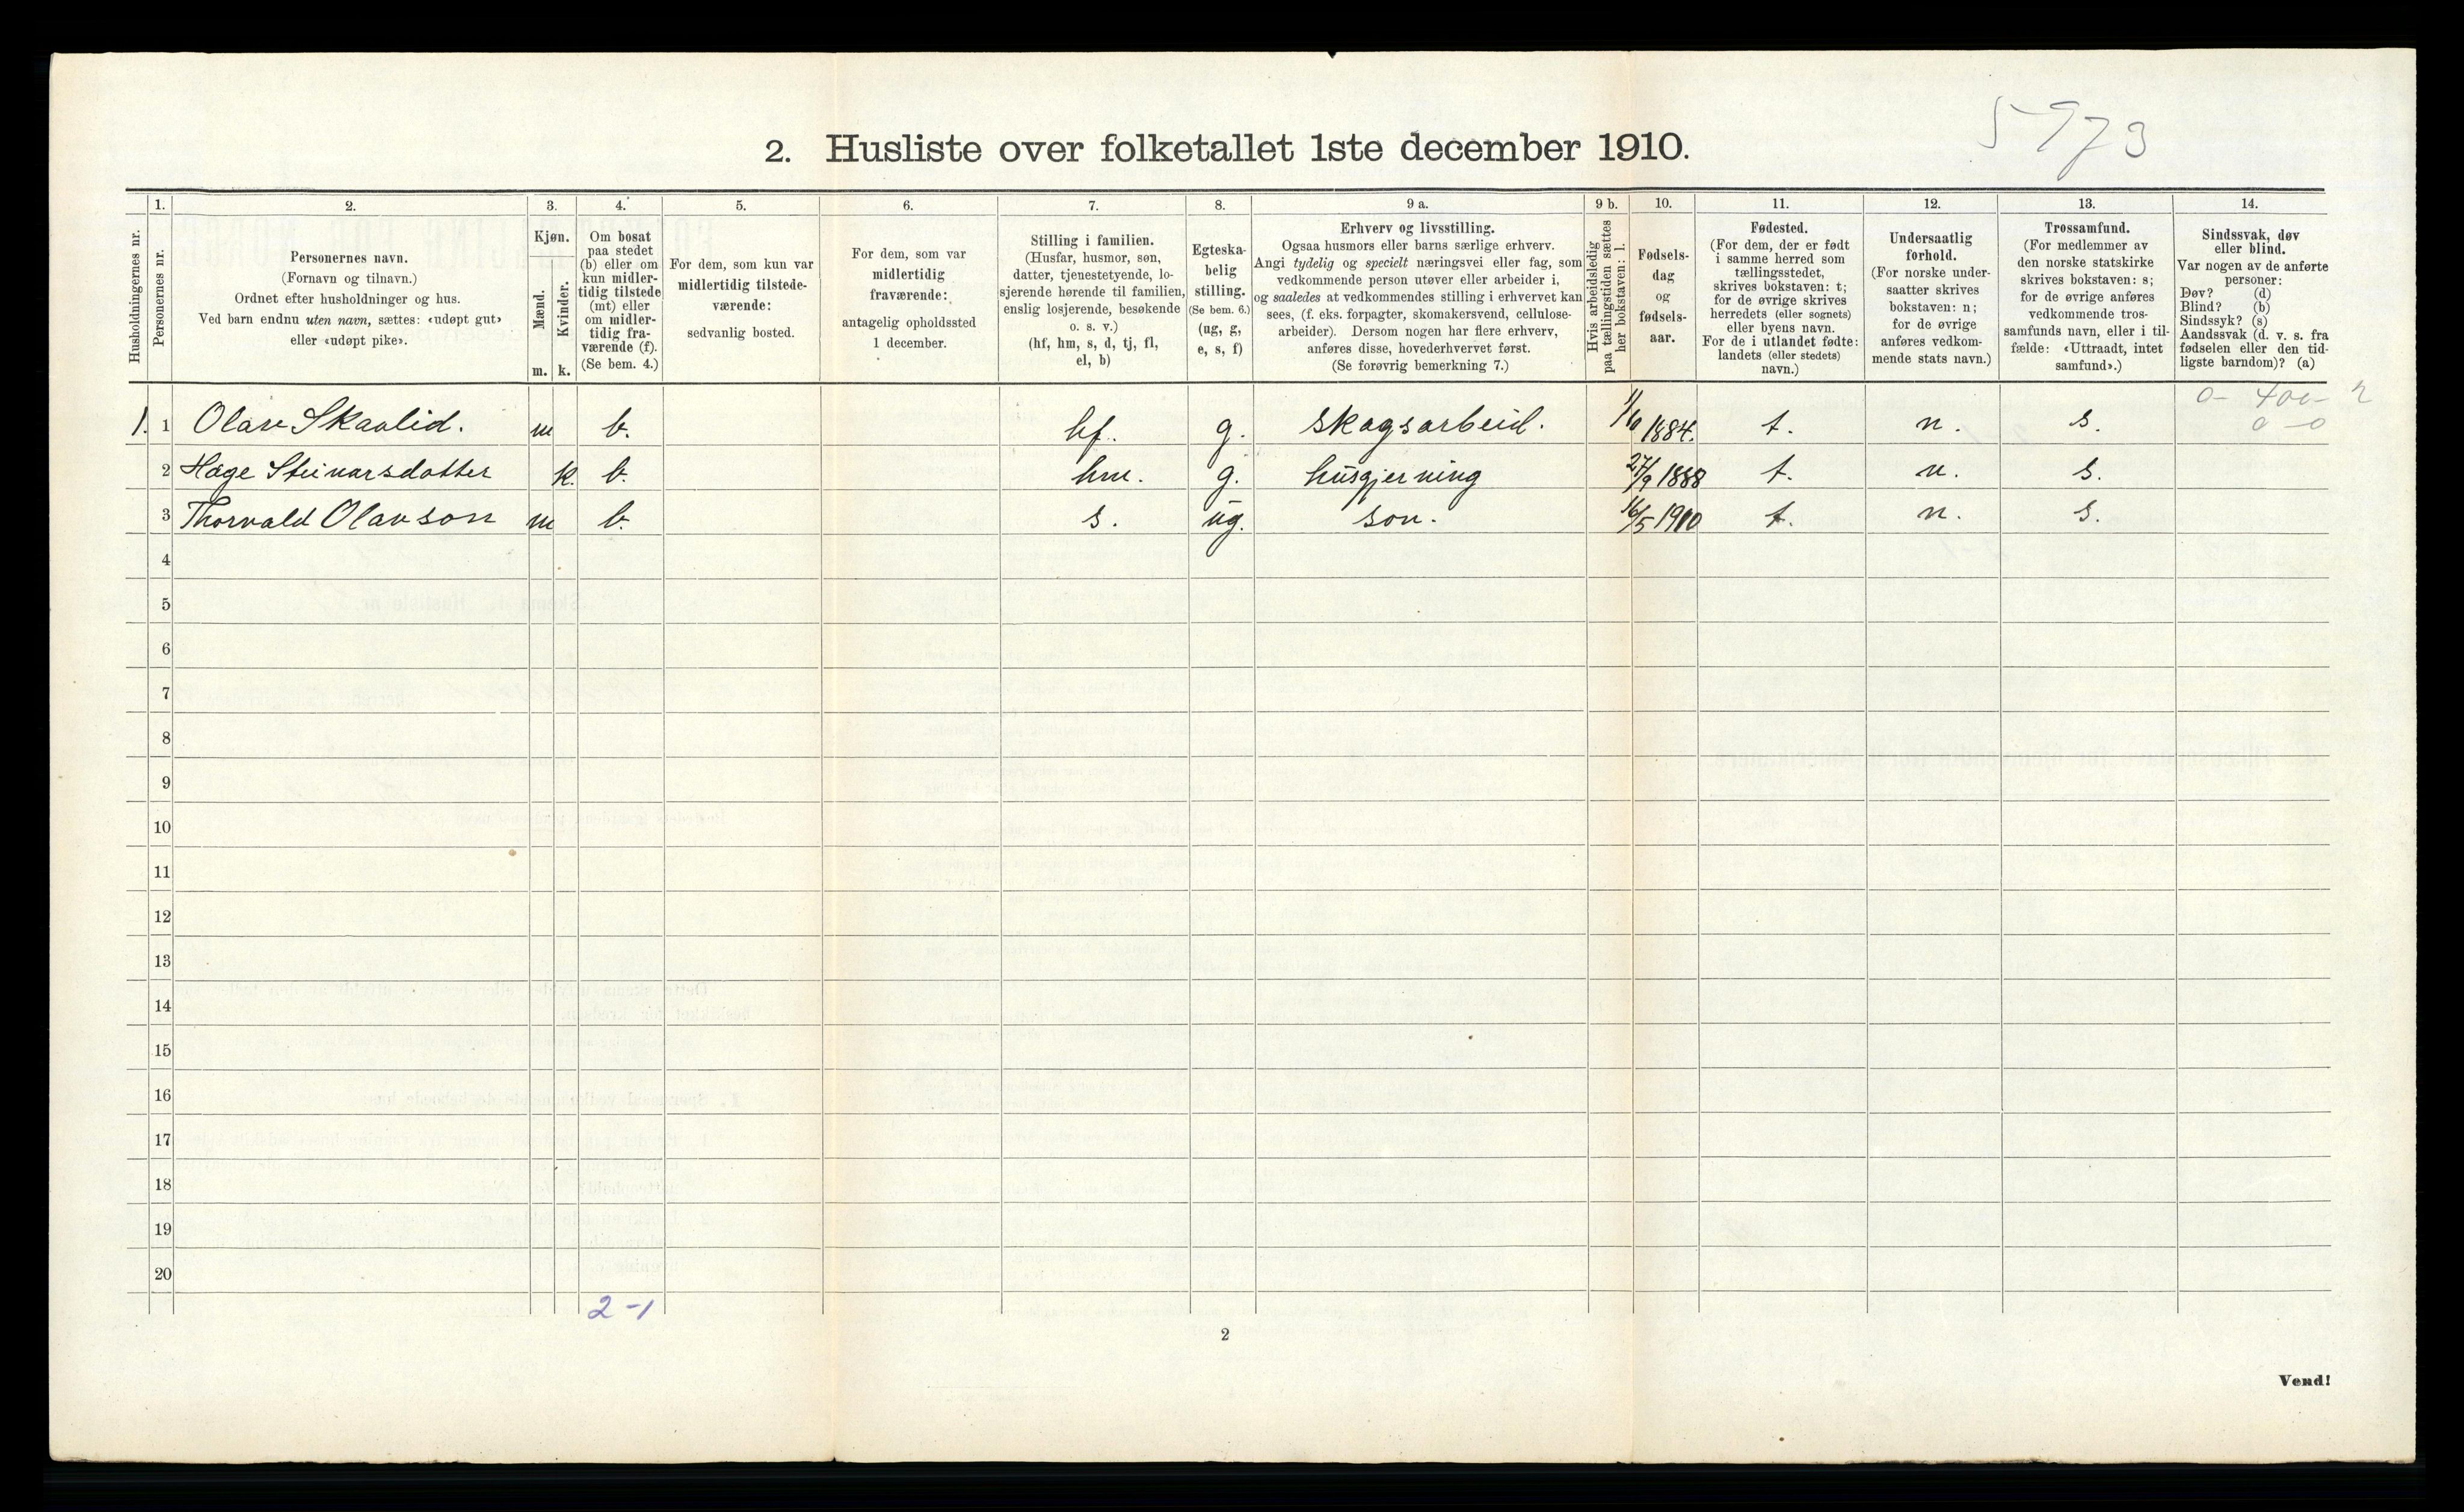 5973
2. Husliste over folketallet 1ste december 1910.
Husholdningernes nr.
1.
Personernes nr.
2.
Personernes navn.
(Fornavn og tilnavn.)
Ordnet efter husholdninger og hus.
Ved barn endnu uten navn, sættes: «udøpt gut»
eller «udøpt pike».
3.
Kjøn.
Mænd.
Kvinder.
m. k.
4.
Om bosat
paa stedet
(b) eller om
kun midler-
tidig tilstede
(mt) eller
om midler-
tidig fra-
værende (f).
(Se bem. 4.)
5.
For dem, som kun var
midlertidig tilstede-
værende:
sedvanlig bosted.
6.
For dem, som var
midlertidig
fraværende:
antagelig opholdssted
1 december.
7.
Stilling i familien.
(Husfar, husmor, søn,
datter, tjenestetyende, lo-
sjerende hørende til familien,
enslig losjerende, besøkende
o. s. v.)
(hf, hm, s, d, tj, fl,
el, b)
8.
Egteska-
belig
stilling.
(Se bem. 6.)
(ug, g,
e, s, f)
9 a.
Erhverv og livsstilling.
Ogsaa husmors eller barns særlige erhverv.
Angi tydelig og specielt næringsvei eller fag, som
vedkommende person utøver eller arbeider i,
og saaledes at vedkommendes stilling i erhvervet kan
sees, (f. eks. forpagter, skomakersvend, cellulose-
arbeider). Dersom nogen har flere erhverv,
anføres disse, hovederhvervet først.
(Se forøvrig bemerkning 7.)
9 b.
Hvis arbeidsledig
paa tællingstiden sættes
her bokstaven: l.
10.
Fødsels-
dag
og
fødsels-
aar.
11.
Fødested.
(For dem, der er født
i samme herred som
tællingsstedet,
skrives bokstaven: t;
for de øvrige skrives
herredets (eller sognets)
eller byens navn.
For de i utlandet fødte:
landets (eller stedets)
navn.)
12.
Undersaatlig
forhold.
(For norske under-
saatter skrives
bokstaven: n;
for de øvrige
anføres vedkom-
mende stats navn.)
13.
Trossamfund.
(For medlemmer av
den norske statskirke
skrives bokstaven: s;
for de øvrige anføres
vedkommende tros-
samfunds navn, eller i til-
fælde: «Uttraadt, intet
samfund».)
14.
Sindssvak, døv
eller blind.
Var nogen av de anførte
personer:
Døv? (d)
Blind? (b)
Sindssyk? (s)
Aandssvak (d. v. s. fra
fødselen eller den tid-
ligste barndom)? (a)
1. 1 Olav Skaalid. m b. hf. g. skogsarbeid. 1/10 1884. t. n. s.
0 - 0
2 Hæge Steinarsdotter k. b. hm. g. husgjerning 27/9 1888 t. n. s.
3 Thorvald Olavson m b. s. ug. son. 16/5 1910 t. n. s.
4
5
6
7
8
9
10
11
12
13
14
15
16
17
18
19
20
2 - 1
2
Vend!